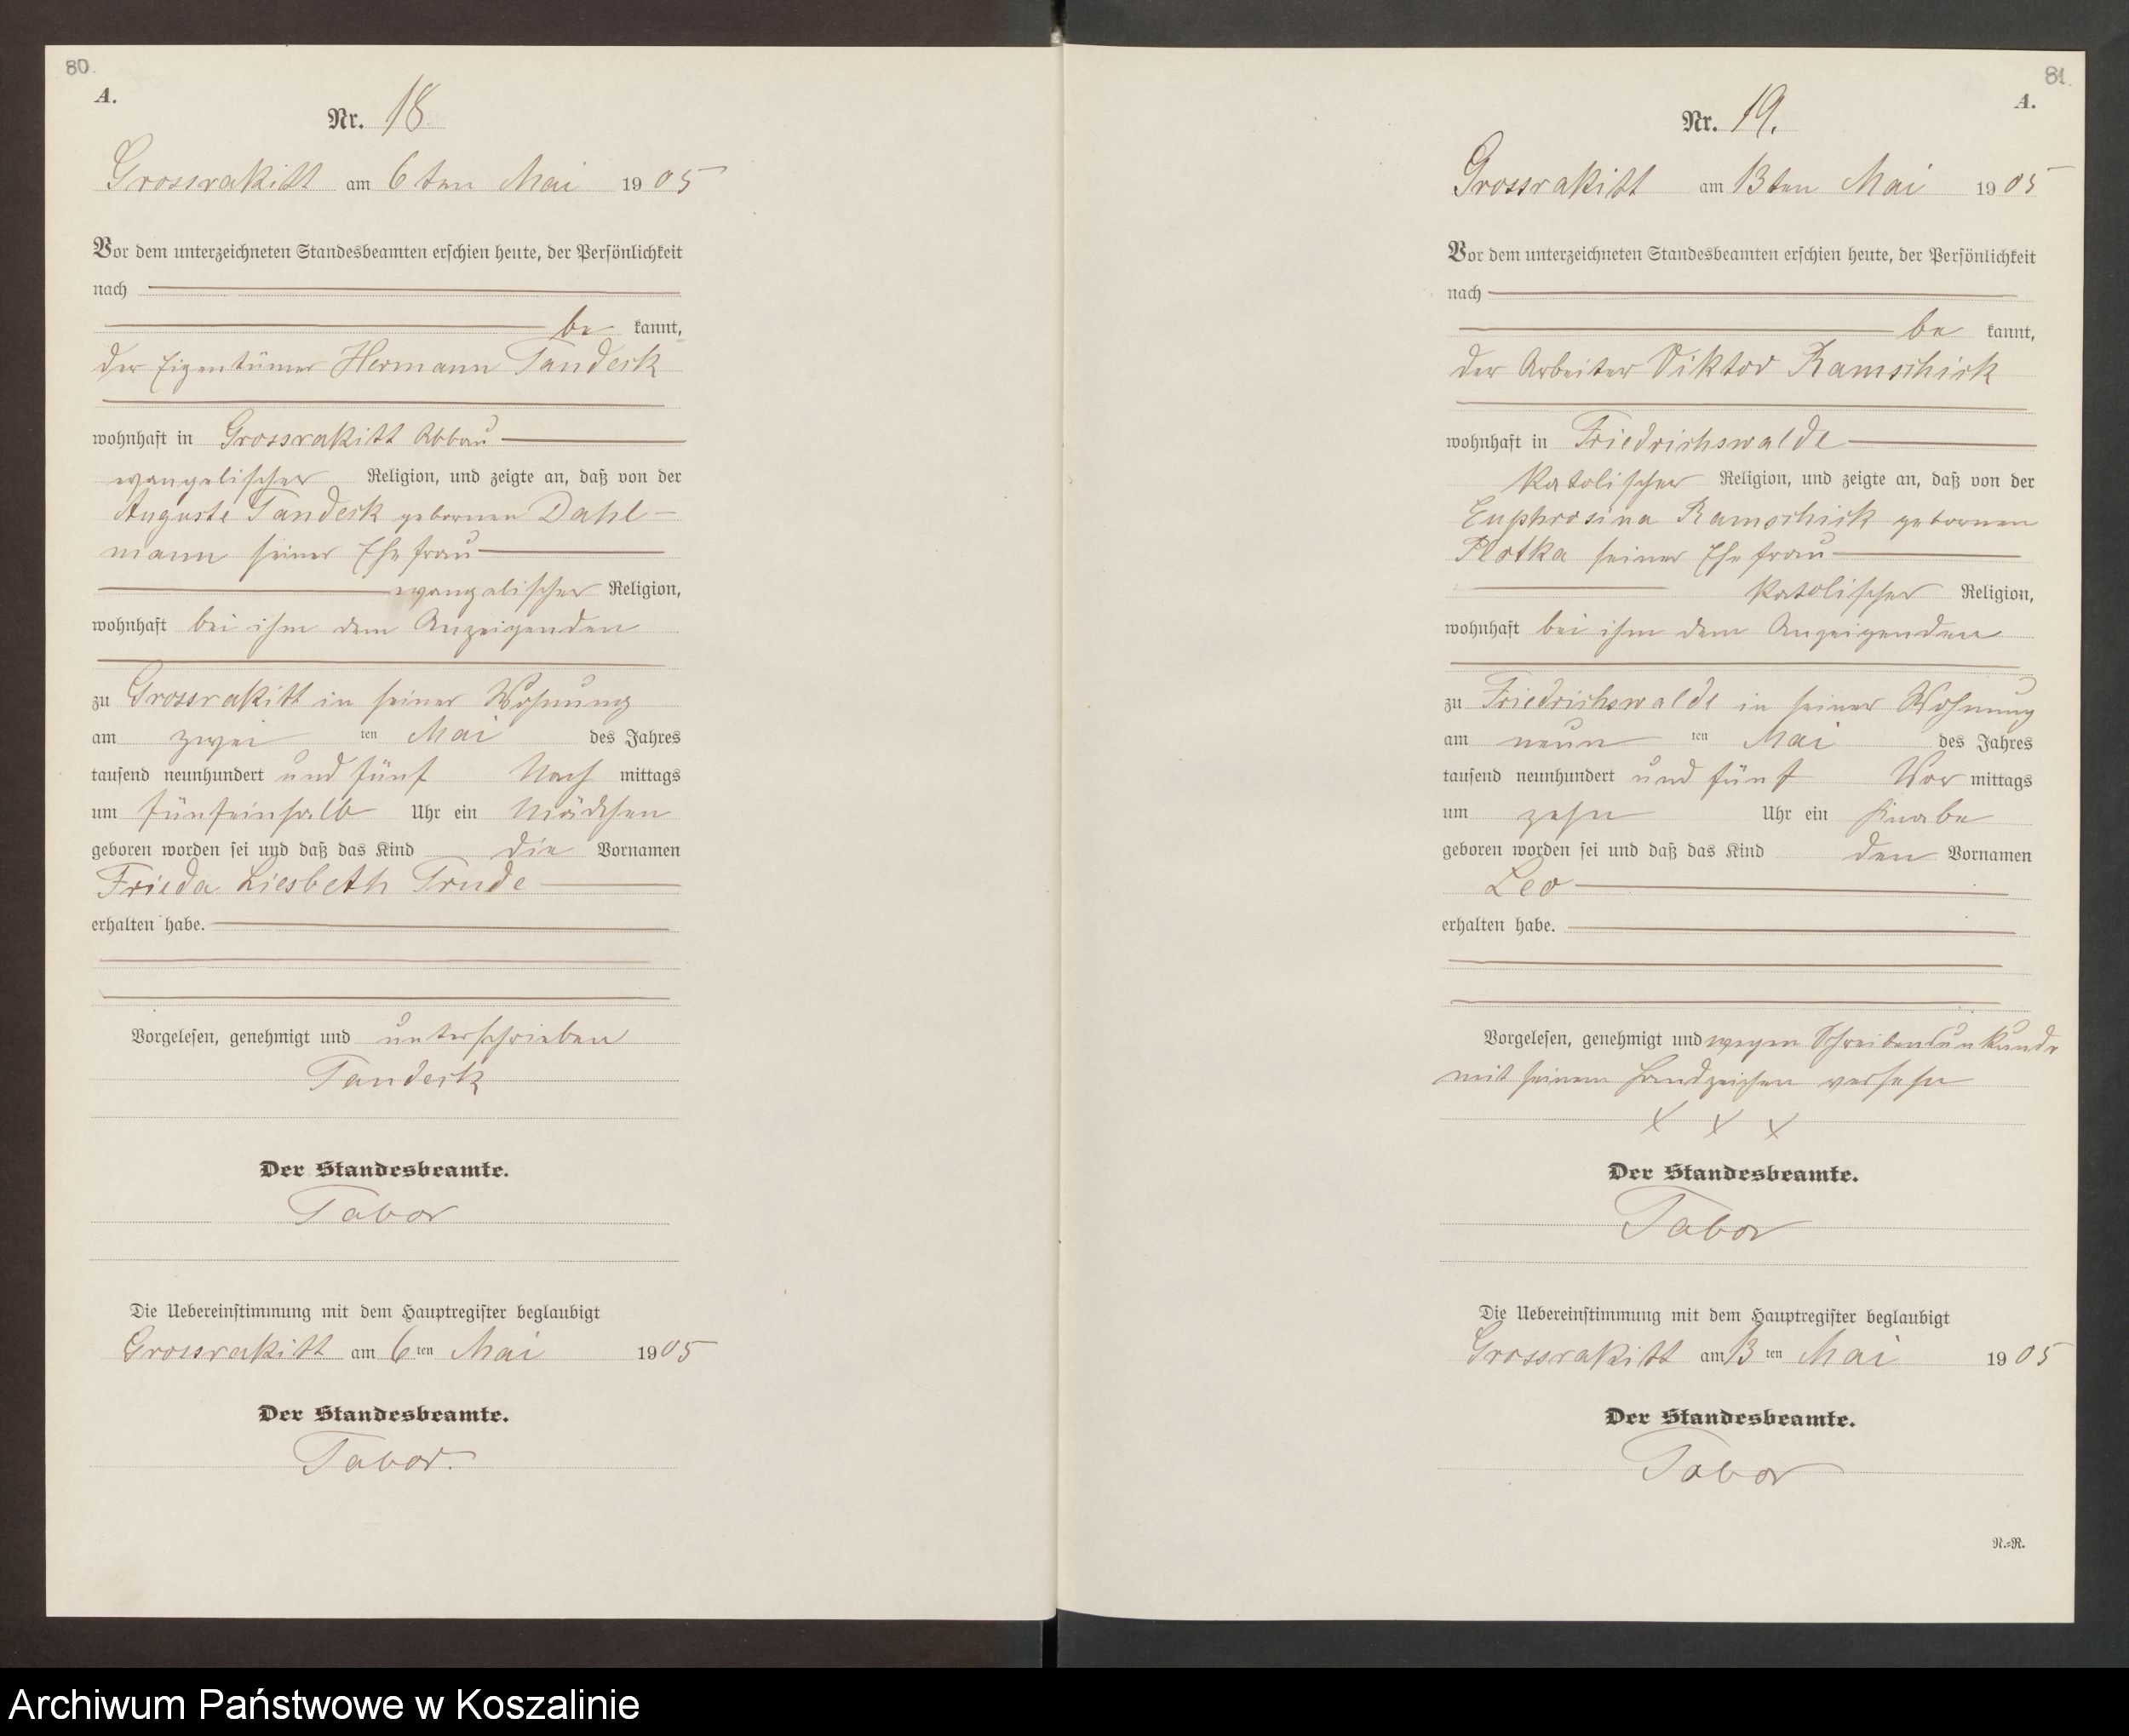 80.
A.
Nr. 18
Grossrakitt am 6ten Mai 1905
Vor dem unterzeichneten Standesbeamten erschien heute, der Persönlichkeit
nach
be kannt,
der Eigentümer Hermann Tandeck
wohnhaft in Grossrakitt Abbau
evangelischer Religion, und zeigte an, daß von der
Auguste Tandeck gebornen Dahl-
mann seiner Ehefrau
evangelischer Religion,
wohnhaft bei ihm dem Anzeigenden
zu Grossrakitt in seiner Wohnung
am zwei ten Mai des Jahres
tausend neunhundert und fünf Nach mittags
um fünfeinhalb Uhr ein Mädchen
geboren worden sei und daß das Kind die Vornamen
Frieda Liesbeth Trude
erhalten habe.
Vorgelesen, genehmigt und unterschrieben
Tandeck
Der Standesbeamte.
Tabor
Die Uebereinstimmung mit dem Hauptregister beglaubigt
Grossrakitt am 6ten Mai 1905
Der Standesbeamte.
Tabor.
81.
A.
Nr. 19.
Grossrakitt am 13ten Mai 1905
Vor dem unterzeichneten Standesbeamten erschien heute, der Persönlichkeit
nach
be kannt,
der Arbeiter Viktor Ramschick
wohnhaft in Friedrichswalde
Katolischer Religion, und zeigte an, daß von der
Euphrosina Ramschick gebornen
Plotka seiner Ehefrau
Katolischer Religion,
wohnhaft bei ihm dem Anzeigenden
zu Friedrichswalde in seiner Wohnung
am neun ten Mai des Jahres
tausend neunhundert und fünf Vor mittags
um zehn Uhr ein Knabe
geboren worden sei und daß das Kind den Vornamen
Leo
erhalten habe.
Vorgelesen, genehmigt und wegen Schreibensunkunde
mit seinem Handzeichen versehn
X X X
Der Standesbeamte.
Tabor
Die Uebereinstimmung mit dem Hauptregister beglaubigt
Grossrakitt am 13ten Mai 1905
Der Standesbeamte.
Tabor
N.=R.
Archiwum Państwowe w Koszalinie